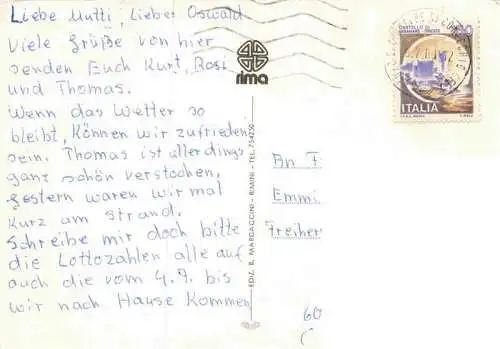 Liebe Mutti, Lieber Oswald
Viele Grüße von hier
senden Euch Kurt, Rosi
und Thomas.
Wenn das Wetter so
bleibt, Können wir zufrieden
sein. Thomas ist allerdings
ganz schön verstochen,
gestern waren wir mal
Kurz am Strand.
Schreibe mir doch bitte
die Lottozahlen alle auf
auch die vom 4.9. bis
wir nach Hause Kommen
rima
EDIZ. B. MARGACCINI - RIMINI - TEL. 734230
CASTELLO DI
MIRAMARE - TRIESTE
ITALIA
An F
Emmi
Freiher
60